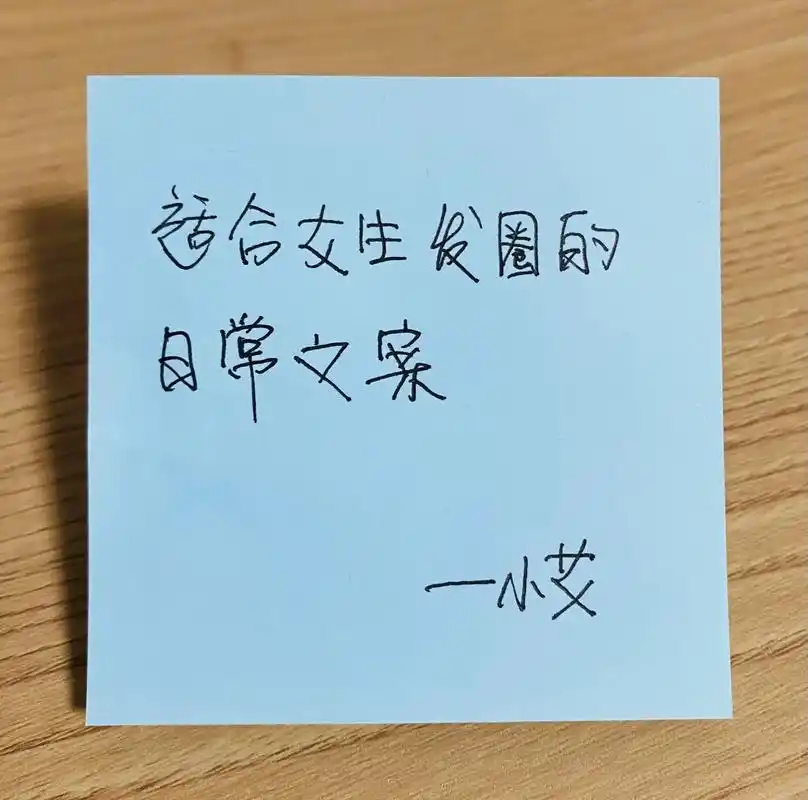 适合女生发圈的
日常文案
一小艾